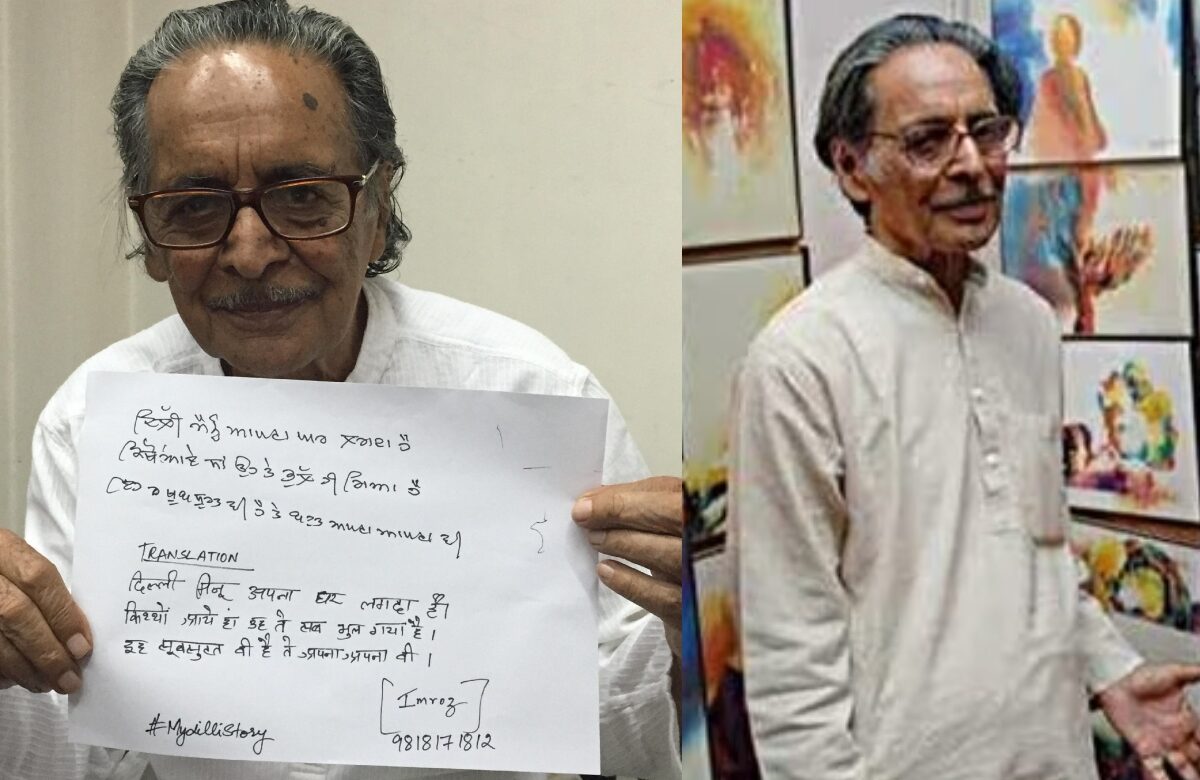 ਦਿੱਲੀ ਮੈਨੂੰ ਆਪਣਾ ਘਰ ਲਗਦਾ ਹੈ
ਕਿੱਥੋਂ ਆਏ ਸਾਂ ਉਹ ਤੇ ਭੁੱਲ ਹੀ ਗਿਆ ਹੈ
ਖੂਬਸੂਰਤ ਵੀ ਹੈ ਤੇ ਬਹੁਤ ਆਪਣਾ ਆਪਣਾ ਵੀ
TRANSLATION
दिल्ली मिनू अपना घर लगदा है।
किथ्थों आये हां कह ते सब भुल गया है ।
इह खूबसुरत वी है ते अपना अपना वी ।
[Imroz]
#MydilliStory
9818171812